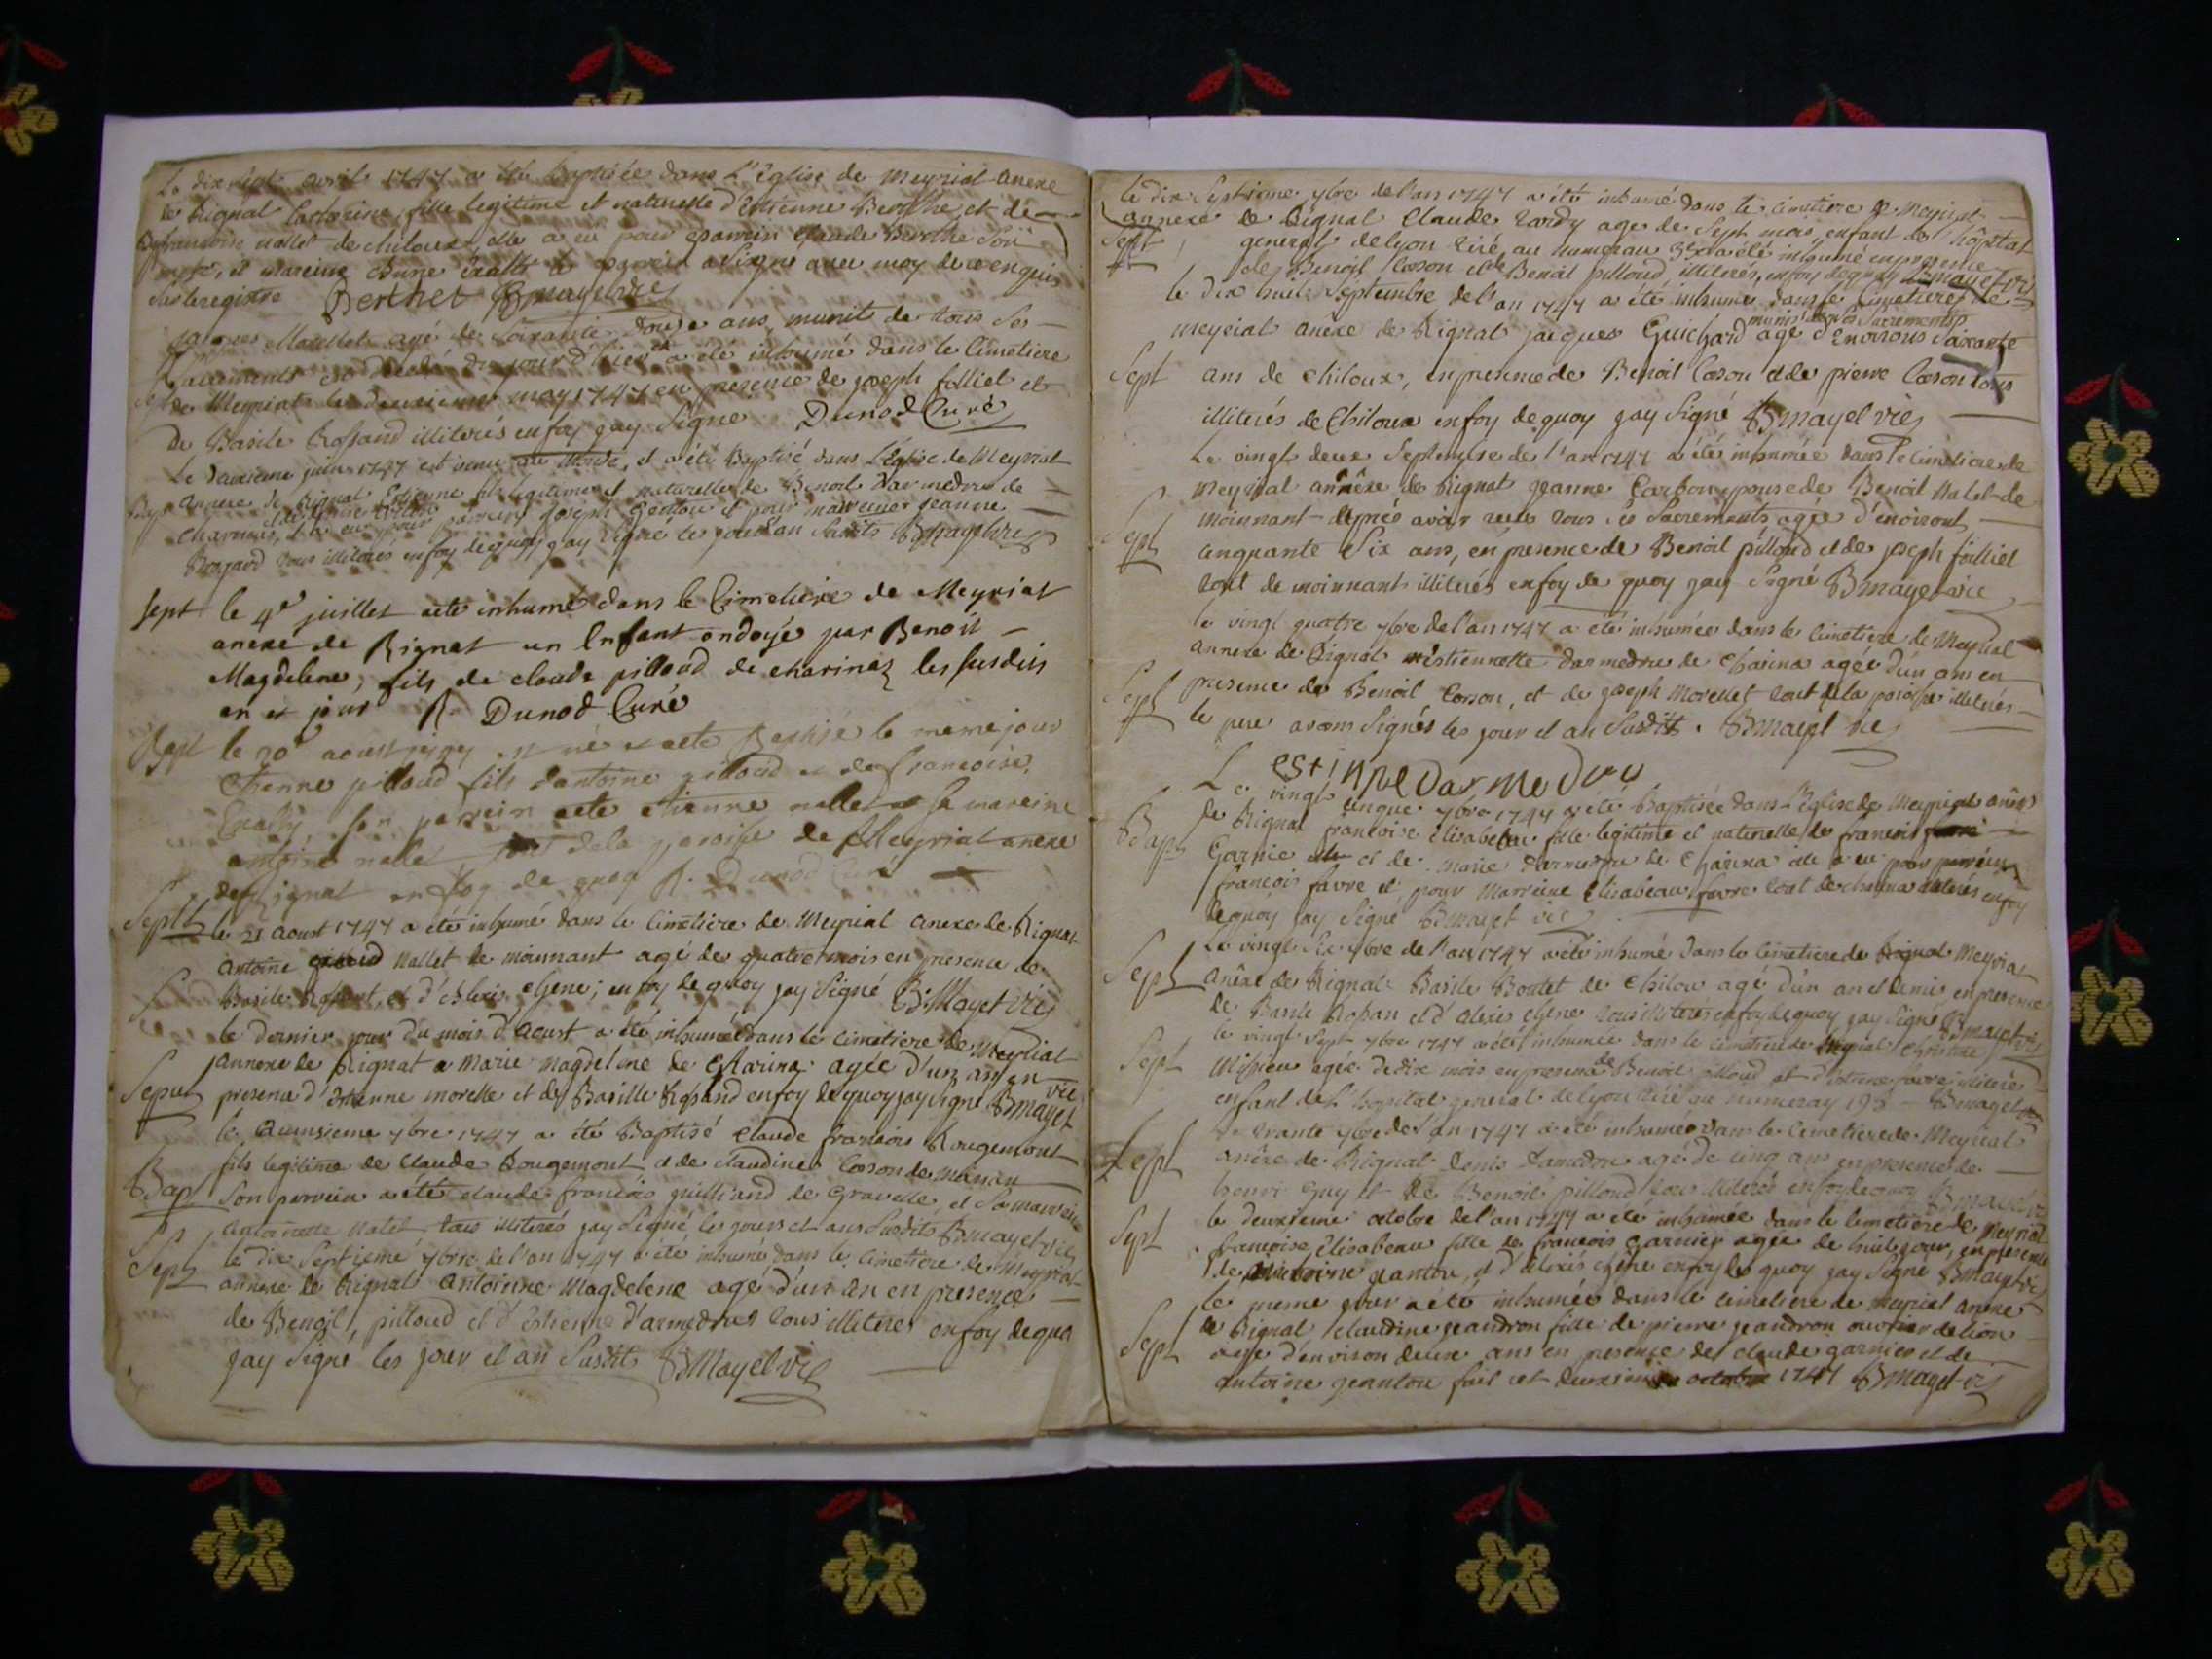 Le dix avril 1747 a été baptisée dans L'Eglise de Meyriat anexe
de Rignat fille legitime et naturelle d'Estienne Berthe et de
francoise nallet de chiloux, elle a eu pour parrein Claude Berthe son
et mareine a signe avec moy de ce enquis
Berthet Bmayet vic
Jacques Mallet agé de soixante douze ans, munit de tous ses
sacrements est decedé du jourd'hier et a été inhumé dans le Cimetiere
de Meyriat le deuxieme may 1747 en presence de joseph folliet et
de Basile Rossand illiterés en foy jay signe Dunod Curé
Le deuxieme juin 1747 est venu au monde, et a été Baptisé dans l'Eglise de Meyriat
Bap annexe de Rignat Estienne fils legitime et naturelle de Benoit Darmedru de
charinas, il a eu pour parrein Joseph et pour marreine jeanne
tous illiterés en foy de quoy jay signé les jour et an susdits Bmayet vic
sept le 4e juillet a ete inhumé dans le Cimetiere de Meyriat
anexe de Rignat un Enfant ondoyé par Benoit
Magdelene, fils de claude pilloud de charinaz les susdits
an et jour R. Dunod Curé
Bapt le 20e aoust 1747 est né et a ete Baptisé le meme jour
Etienne pilloud fils d'antoine pilloud et de francoise
son parrein a ete etienne nallet et sa mareine
nallet tout de la paroisse de Meyriat anexe
de Rignat en foy de quoy R. Dunod Curé
Sept le 21 aoust 1747 a été inhumé dans le Cimetiere de Meyriat anexe de Rignat
antoine Nallet de moinnant agé de quatre mois en presence de
Basile Rossant, et d'alexis chene; en foy de quoy jay signé B. Mayet vic
le dernier jour du mois d'Aoust a été inhumé dans le cimetiere de Meyriat
annexe de Rignat a Marie magdeline de Charina agée d'un an en
Sepul presence d'Estienne morelle et de Basille Rossand en foy de quoy jay signé Bmayet vic
le quinsieme 7bre 1747 a été Baptisé claude francois Rougemont
Bapt fils legitime de Claude Rougemont et de claudine Coson de moinan
son parrein a été claude francois guilliand de gravelle, et sa marreine
antoinette Nalet tous illiterés jay signé les jours et ans susdits Bmayet vic
Sept le dix septieme 7bre de l'an 1747 a été inhumé dans le cimetiere de Meyriat
annexe de Rignat antoinne Magdelene agé d'un an en presence
de Benoit pilloud et d'Estienne d'armedrus tous illiterés en foy de quoi
jay signé les jour et an susdits B Mayet vic
le dix septieme 7bre de l'an 1747 a été inhumé dans le cimetiere de Meyriat
annexe de Rignat Claude agé de sept mois, enfant de l'hôpital
Sept general de Lyon tiré au numerau a été inhumé en presence
de Benoit Coson et de Benoit pilloud illiterés, en foy de quoy Bmayet vic
le dix huit Septembre de l'an 1747 a été inhumé dans le Cimetiere de
munis de ses Sacrements
Meyriat anêxe de Rignat jacques Guichard agé d'environs soixante
Sept ans de Chiloux, en presence de Benoit Coson et de pierre Coson tous
illiterés de Chiloux en foy de quoy jay signé Bmayet vic
Le vingt deux Septembre de l'an 1747 a été inhumée dans le cimetiere de
Meyriat annêxe de Rignat jeanne Carbon epouse de Benoit Nalet de
Sept moinnant après avoir recu tous ses sacrements agee d'environt
cinquante Six ans, en presence de Benoit pilloud et de joseph folliet
tout de moinnant illiterés en foy de quoy jay signé Bmayet vic
le vingt quatre 7bre de l'an 1747 a été inhumée dans le cimetiere de Meyriat
annexe de Rignat estiennette darmedru de Charina agée d'un an en
Sept presence de Benoit Coson, et de joseph Morellet tout de la paroisse illiterés
le pere avons signés les jour et an susdits. Bmayet vic
estinne Darmedru
Le vingt cinque 7bre 1747 a été Baptisée dans l'Eglise de Meyriat anexe
Bapt de Rignat francoise Elisabeau fille legitime et naturelle de francois
Garnie et de Marie Darmedru de Charina elle a eu pour parrein
francois favre et pour Marreine Elisabeau favre tout de charina illiterés en foy
de quoy jay signé Bmayet vic
Le vingt Six 7bre de l'an 1747 a été inhumé dans le cimetiere de Meyriat
Sept anêxe de Rignat Basile Boulet de Chilou agé d'un an et demie en presence
de Basile Rossan et d'alexis chene tous illiterés en foy de quoy jay signé Bmayet vic
le vingt Sept 7bre 1747 a été inhumée dans le cimetiere de Meyriat Christine
Sept agée de dix mois en presence de Benoit pilloud et d'Estienne favre illiterés
enfant de L'hopital general de lyon tiré au numeray 198 Bmayet vic
Le trante 7bre de l'an 1747 a été inhumé dans le cimetiere de Meyriat
Sept anêxe de Rignat Denis agé de cinq ans en presence de
henri guy et de Benoit pilloud tous illiterés en foy de quoy Bmayet vic
Sept le deuxieme octobre de l'an 1747 a été inhumée dans le cimetiere de Meyriat
francoise Elisabeau fille de francois Garnier agée de huit jour, en presence
de antoine jeanton, et d'alexis chene en foy de quoy jay signé Bmayet vic
le meme jour a été inhumée dans le cimetiere de meyriat anexe
Sept de Rignat claudine jeandron fille de pierre jeandron ouvrier de lion
agée d'environ deux ans en presence de claude garnier et de
antoine jeanton fait cet deuxieme octobre 1747 Bmayet vic